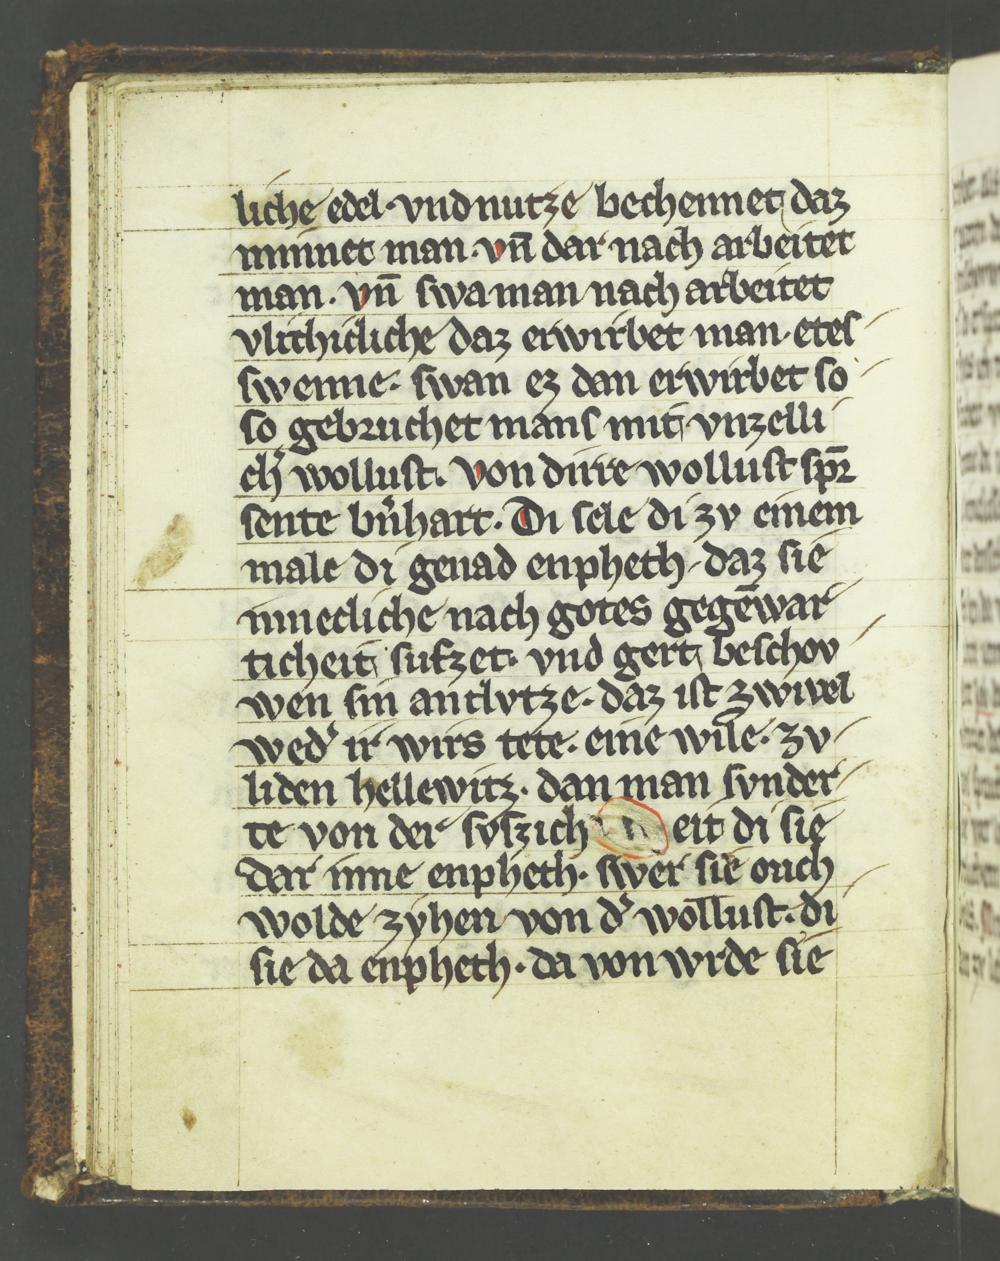 liche edel · vnd nutze bechennet daz
minnet man · vn̄ dar nach arbeitet
man · vn̄ swa man nach arbeitet
vlithicliche daz erwirbet man · etes
swenne · swan ez dan erwirbet so
so gebruchet mans mit vnzelli
ch' wollust. von dirre wollust spr̄
sente bn̄hart · Di sele di zv einem
male di genad enpheth · daz sie
innecliche nach gotes gegēwar
ticheit sufzet · vnd gert beschov
wen sin antlvtze · daz ist zwivel
wed' ir wirs tete · eine wile · zv
liden hellewitz · dan man synder
te von der svszich eit di sie
dar inne enpheth · swer sie ouch
wolde zyhen von d' wollust · di
sie da enpheth · da von wrde sie